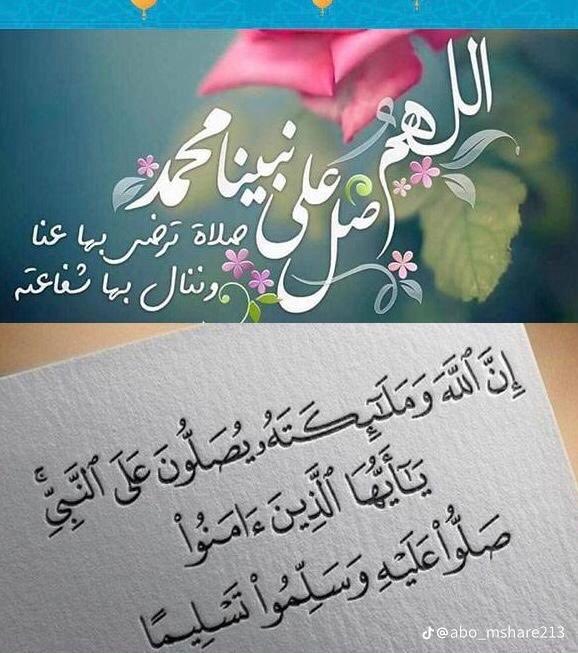 اللهم صل على نبينا محمد
صلاة ترضى بها عنا
وننال بها شفاعته
إِنَّ ٱللَّهَ وَمَلَـٰٓئِكَتَهُۥ يُصَلُّونَ عَلَى ٱلنَّبِىِّ ۚ
يَـٰٓأَيُّهَا ٱلَّذِينَ ءَامَنُوا۟
صَلُّوا۟ عَلَيْهِ وَسَلِّمُوا۟ تَسْلِيمًا
@abo_mshare213